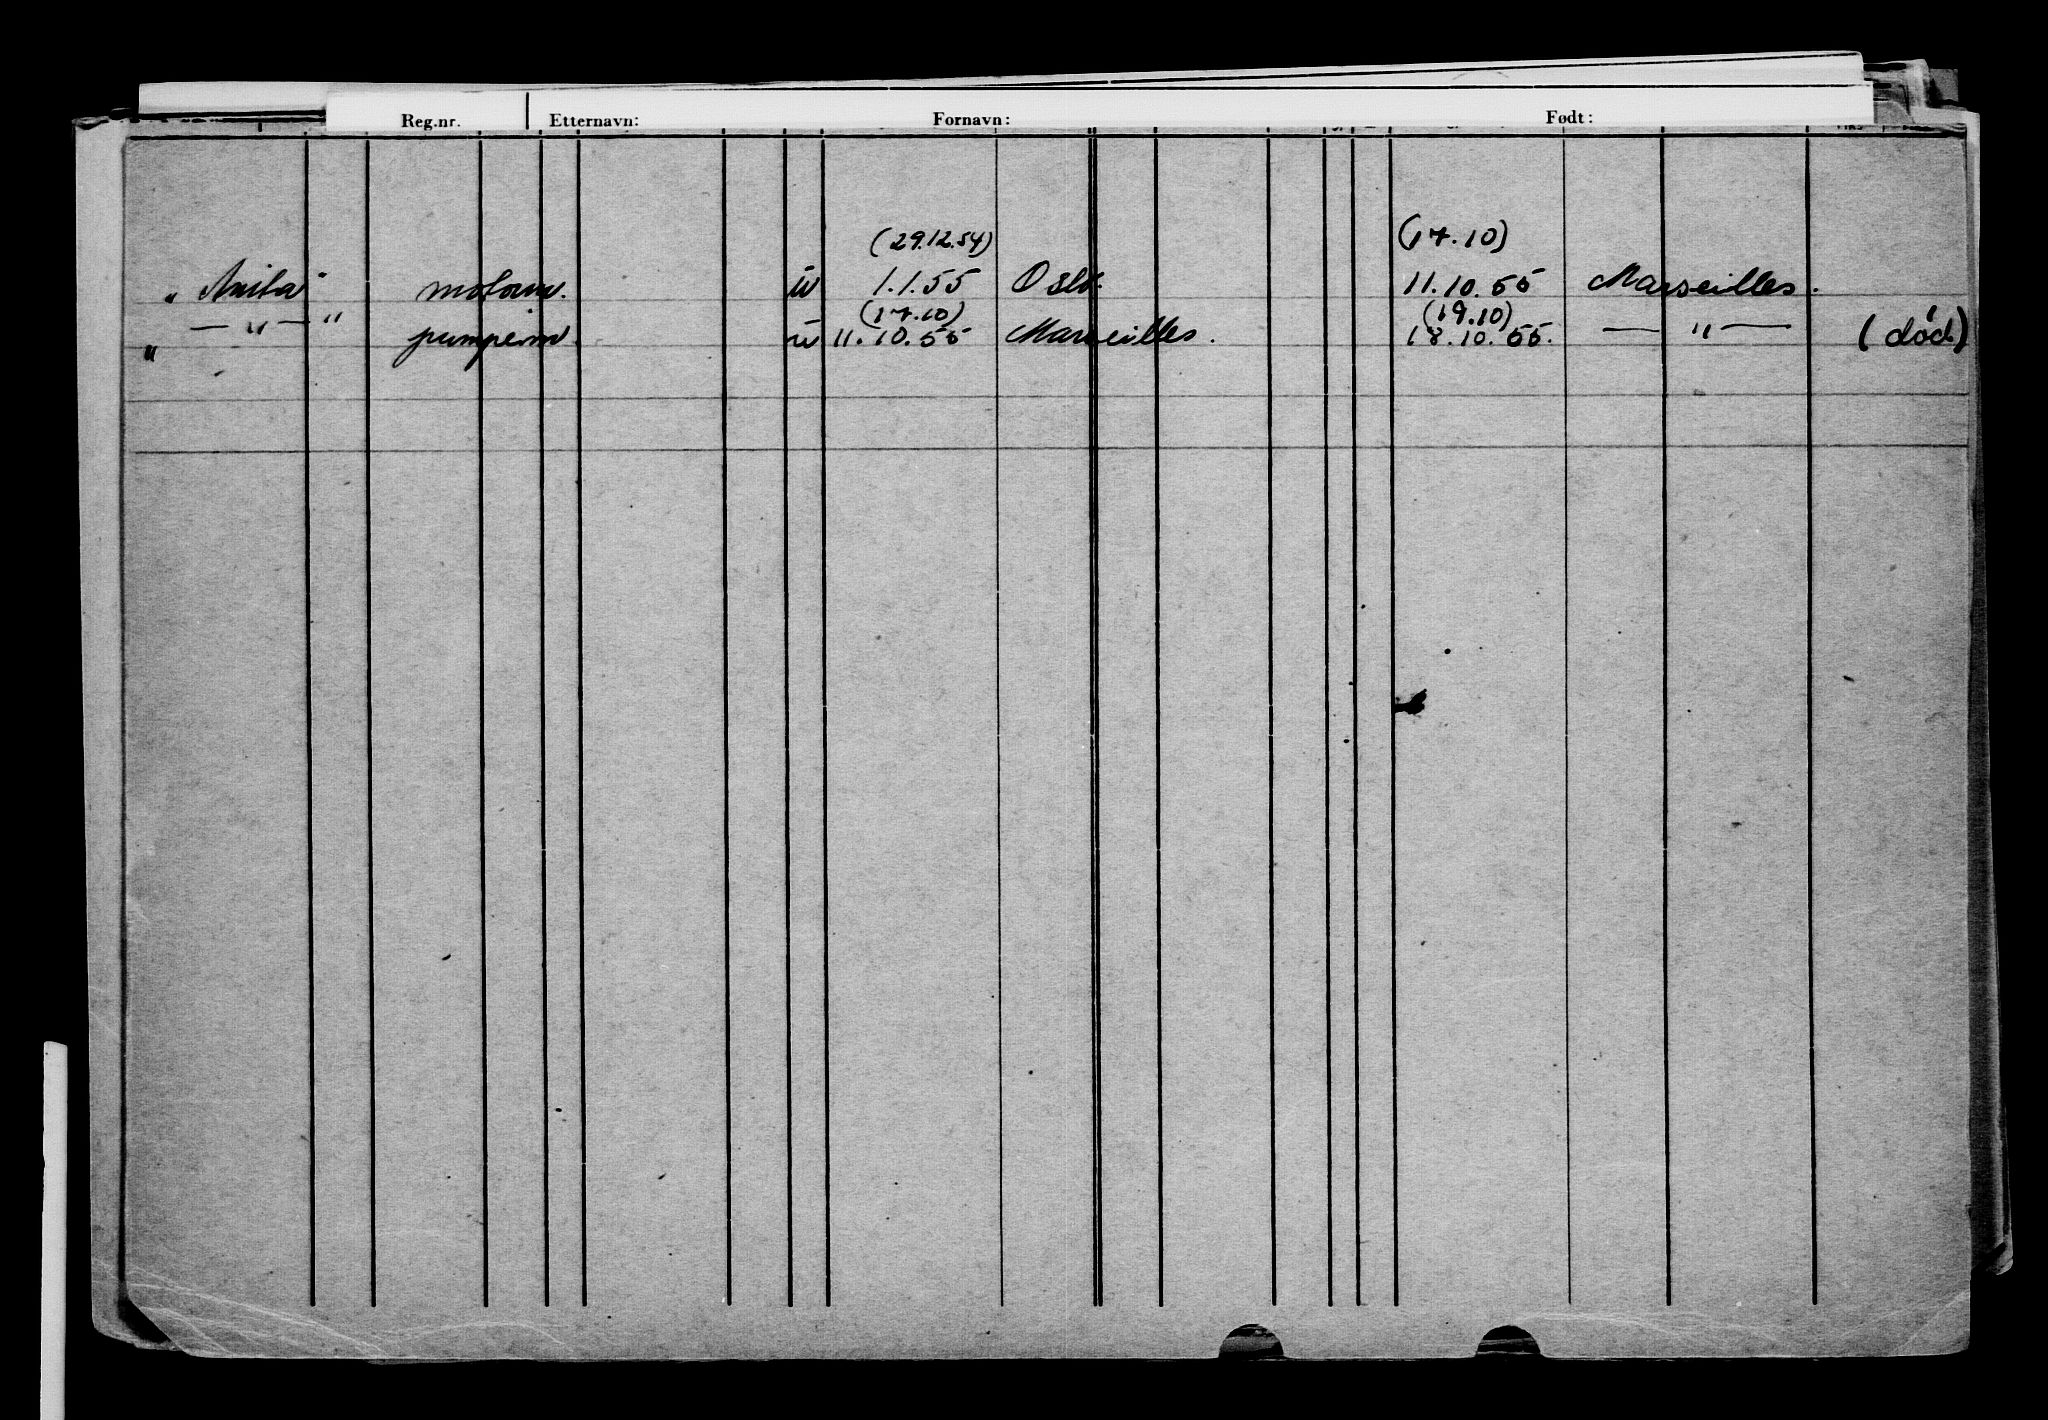 Reg.nr. Etternavn: Fornavn: Født:
(29.12.54) (17.10)
"Anita" motorm. u 1.1.55 Oslo. 11.10.55 Marseilles.
(17.10) (19.10)
" — " — " pumpem. u 11.10.55 Marseilles. 18.10.55. — " — (død)